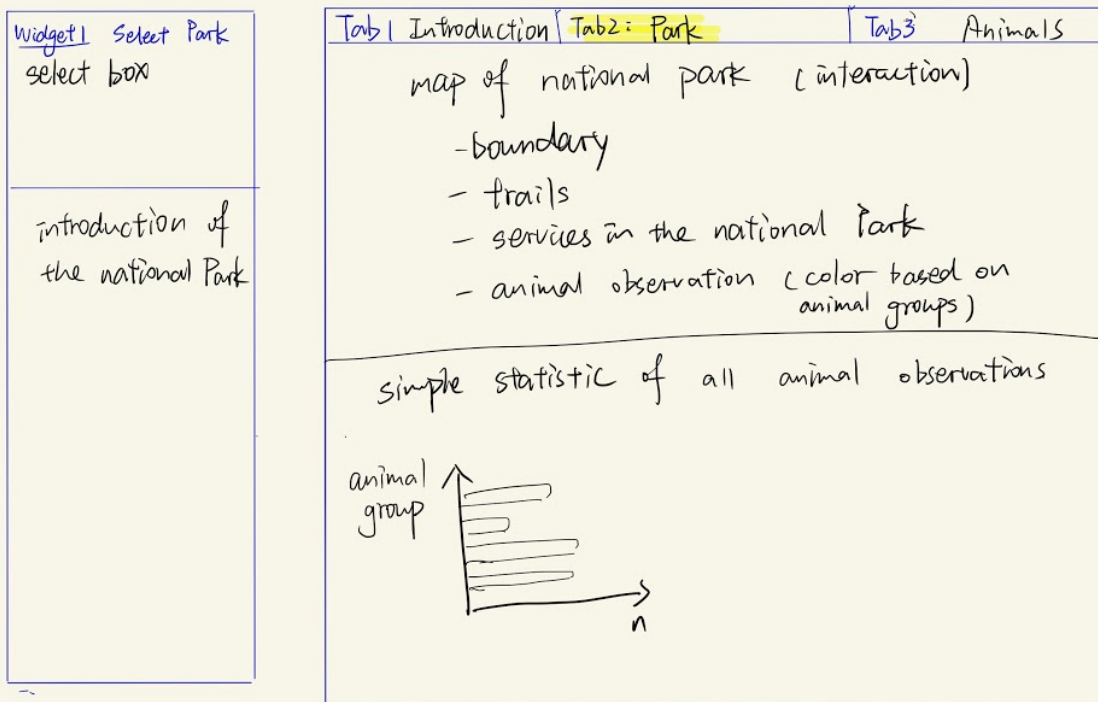 Widget1 Select Park
select box
introduction of
the national Park
Tab1 Introduction
Tab2: Park
Tab3 Animals
map of national park (interaction)
- boundary
- trails
- services in the national Park
- animal observation (color based on
animal groups)
simple statistic of all animal observations
animal
group
n